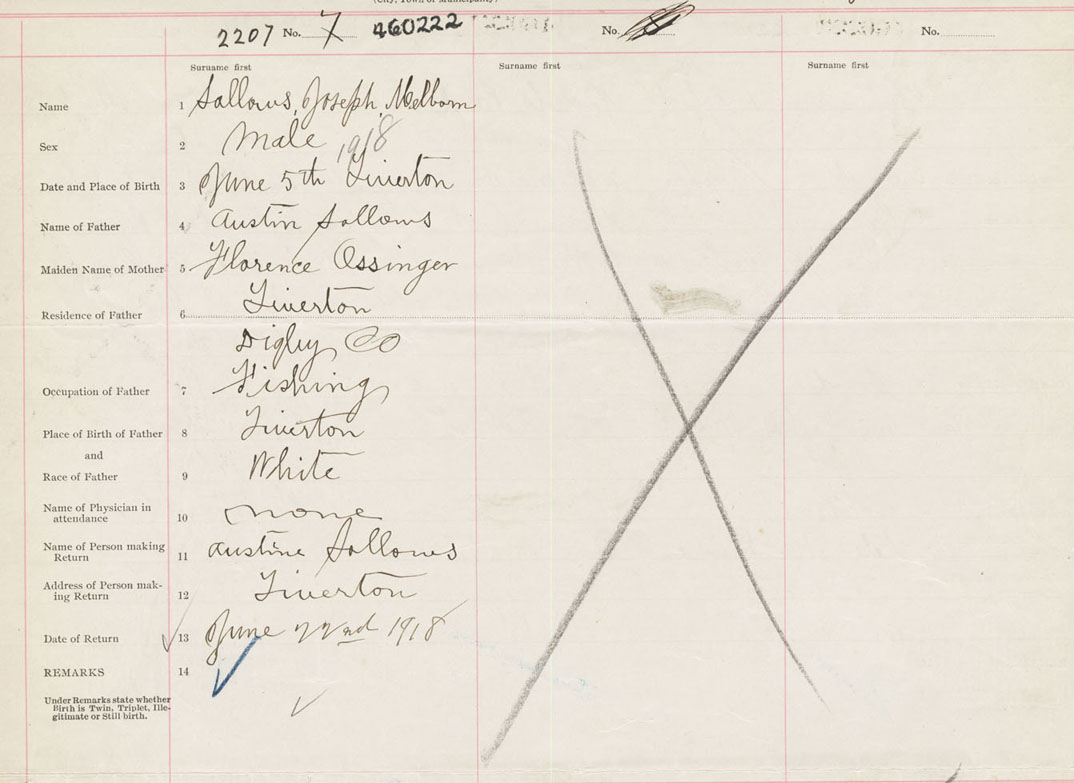 (City, Town or Municipality)
2207 No. 7 460222 No. 8 No.
Surname first Surname first Surname first
Name 1 Sallows, Joseph, Melborn
Sex 2 Male 1918
Date and Place of Birth 3 June 5th Tiverton
Name of Father 4 Austin Sallows
Maiden Name of Mother 5 Florence Ossinger
Tiverton
Residence of Father 6
Digby Co
Occupation of Father 7 Fishing
Place of Birth of Father 8 Tiverton
and
Race of Father 9 White
Name of Physician in
attendance 10 none
Name of Person making
Return 11 Austine Sallows
Address of Person mak-
ing Return 12 Tiverton
Date of Return 13 June 22nd 1918
REMARKS 14
Under Remarks state whether
Birth is Twin, Triplet, Ille-
gitimate or Still birth.